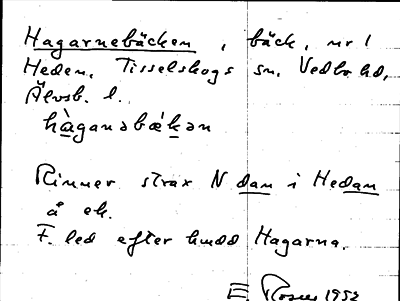 Hagarnebäcken, bäck, nr 1
Heden, Tisselskogs sn, Vedbo hd,
Älvsb. l.
hàganəbækən
Rinner strax N dan i Hedan
å ek.
F. led efter hmdd Hagarna.
E. Rosu 1952